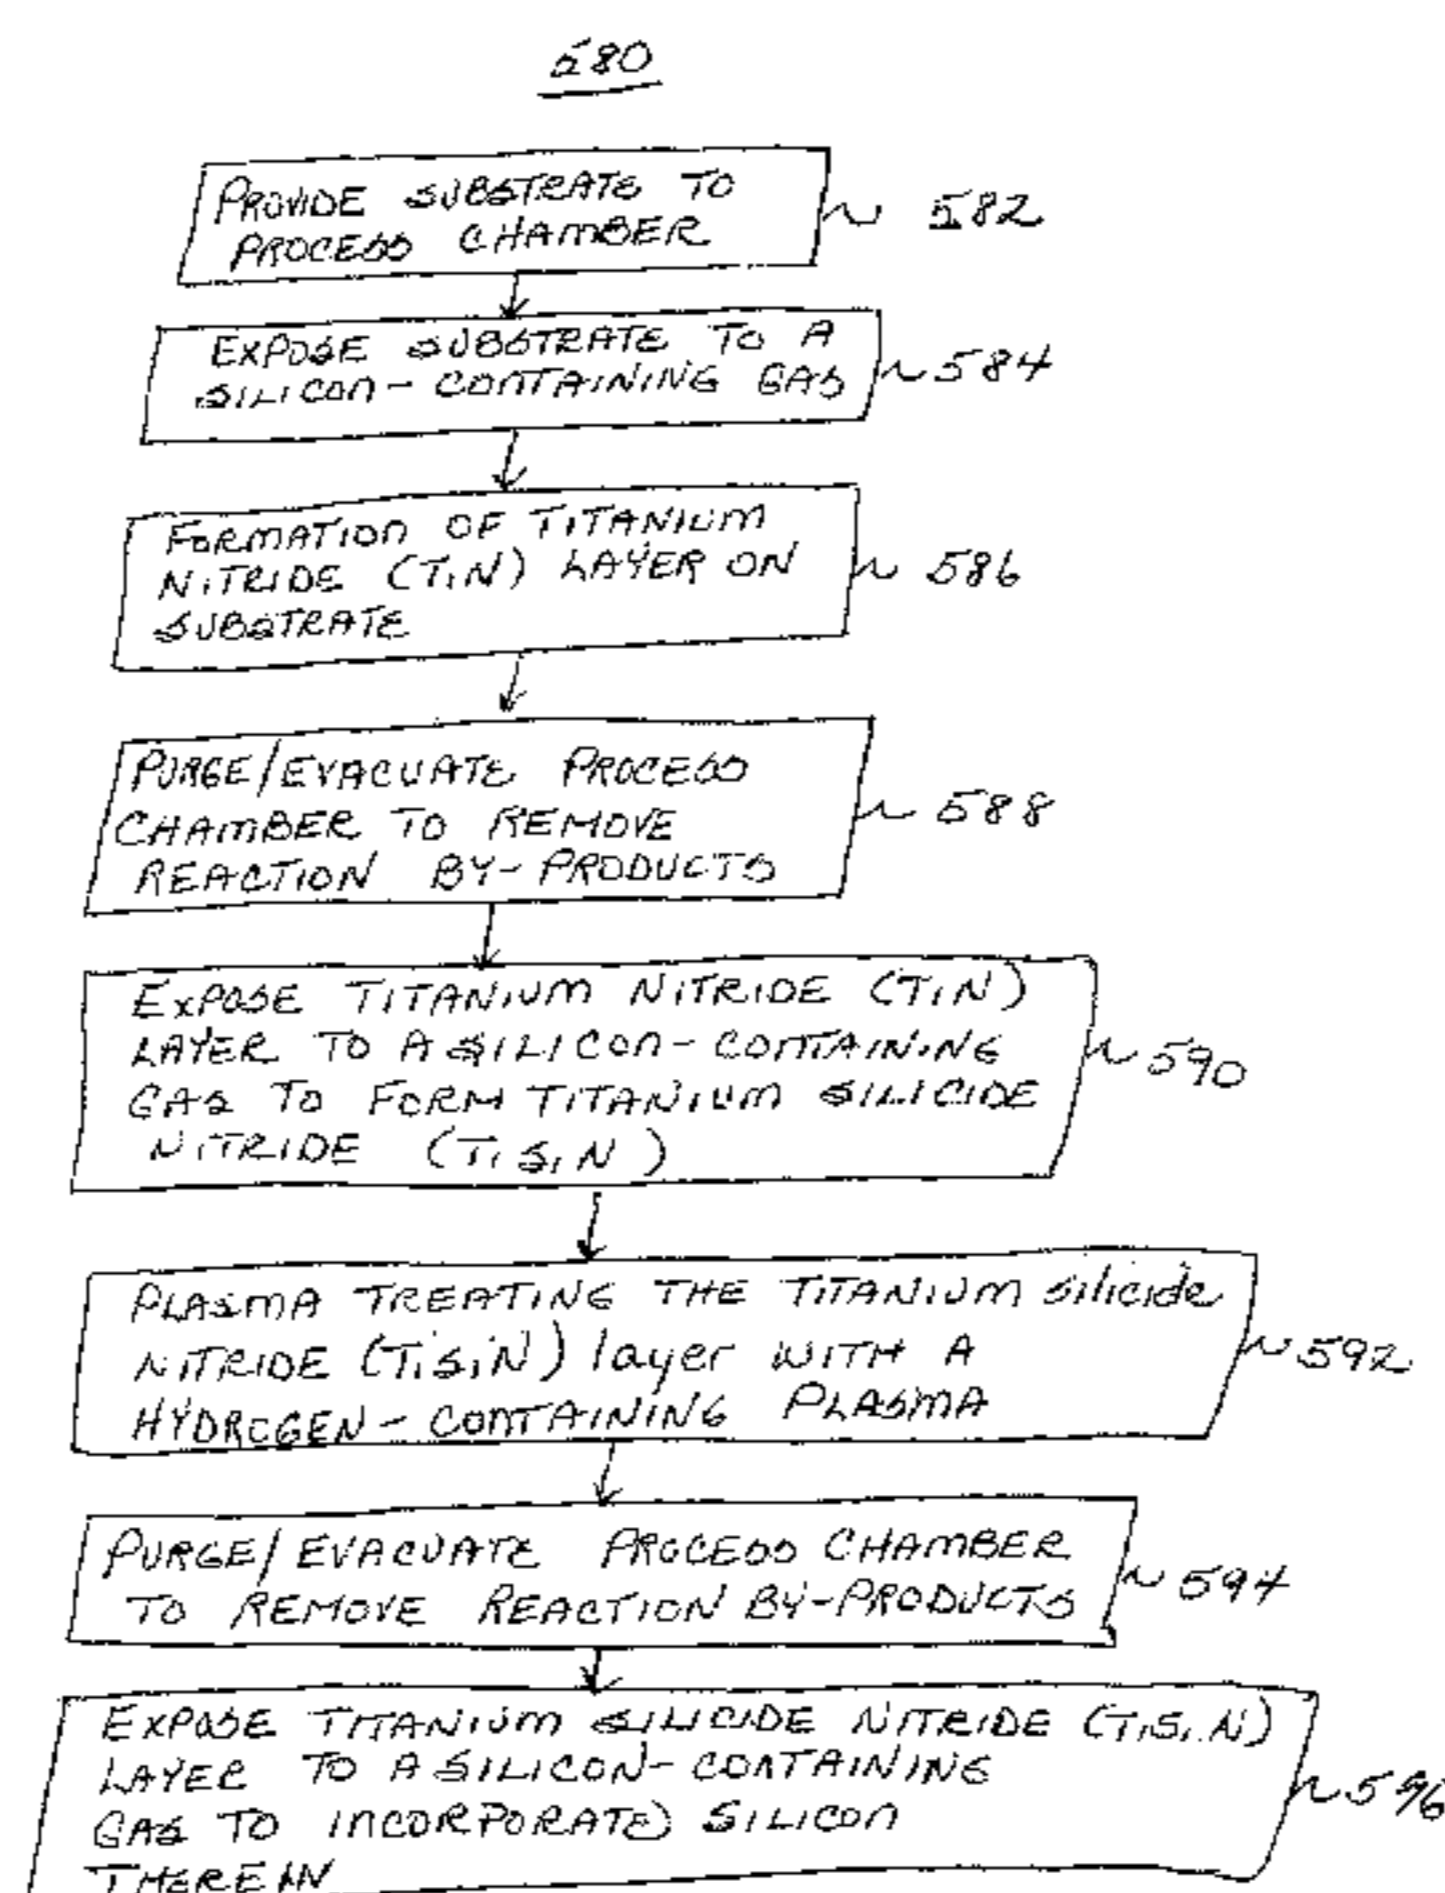 580
PROVIDE SUBSTRATE TO
PROCESS CHAMBER
~ 582
EXPOSE SUBSTRATE TO A
SILICON-CONTAINING GAS
~ 584
FORMATION OF TITANIUM
NITRIDE (TiN) LAYER ON
SUBSTRATE
~ 586
PURGE/EVACUATE PROCESS
CHAMBER TO REMOVE
REACTION BY-PRODUCTS
~ 588
EXPOSE TITANIUM NITRIDE (TiN)
LAYER TO A SILICON-CONTAINING
GAS TO FORM TITANIUM SILICIDE
NITRIDE (TiSiN)
~ 590
PLASMA TREATING THE TITANIUM silicide
NITRIDE (TiSiN) layer WITH A
HYDROGEN-CONTAINING PLASMA
~ 592
PURGE/EVACUATE PROCESS CHAMBER
TO REMOVE REACTION BY-PRODUCTS
~ 594
EXPOSE TITANIUM SILICIDE NITRIDE (TiSiN)
LAYER TO A SILICON-CONTAINING
GAS TO INCORPORATE SILICON
THEREIN
~ 596